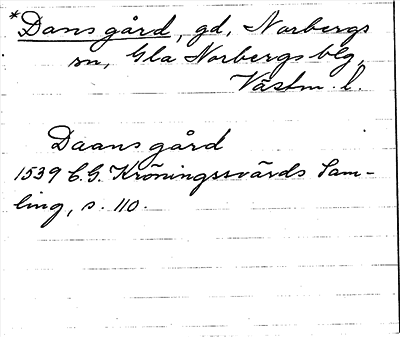 *Dansgård, gd, Norbergs
sn, Gla Norbergs blg,
Västm. l.
Daans gård
1539 C.G. Kröningssvärds Sam-
ling, s. 110.